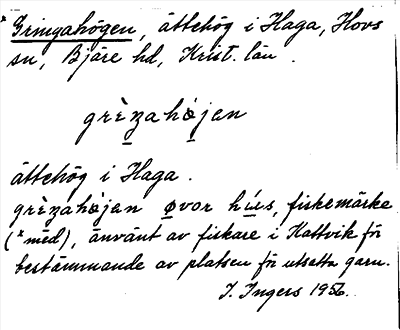 *Gringahögen, ättehög i Haga, Hovs
sn, Bjäre hd, Krist. län.
grèn̲ahø̀jen
ättehög i Haga.
grèn̲ahø̀jen ø̲vor hú̲s, fiskemärke
(*méd), använt av fiskare i Kattvik för
bestämmande av platsen för utsatta garn.
I. Ingers 1956.